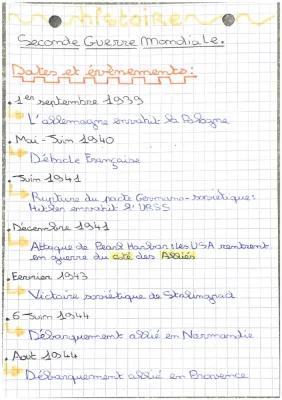 histoire
Seconde Guerre Mondiale.
Dates et évènements:
. 1er septembre 1939
L'allemagne envahit la Pologne
. Mai - Juin 1940
Débacle Française
. Juin 1941
Rupture du pacte Germano-soviétique:
Hitler envahit l'URSS
. Décembre 1941
Attaque de Pearl Harbor: les USA rentrent
en guerre du coté des Alliés
. Février 1943
Victoire soviétique de Stalingrad
. 6 Juin 1944
Débarquement allié en Normandie
. Aout 1944
Débarquement allié en Provence